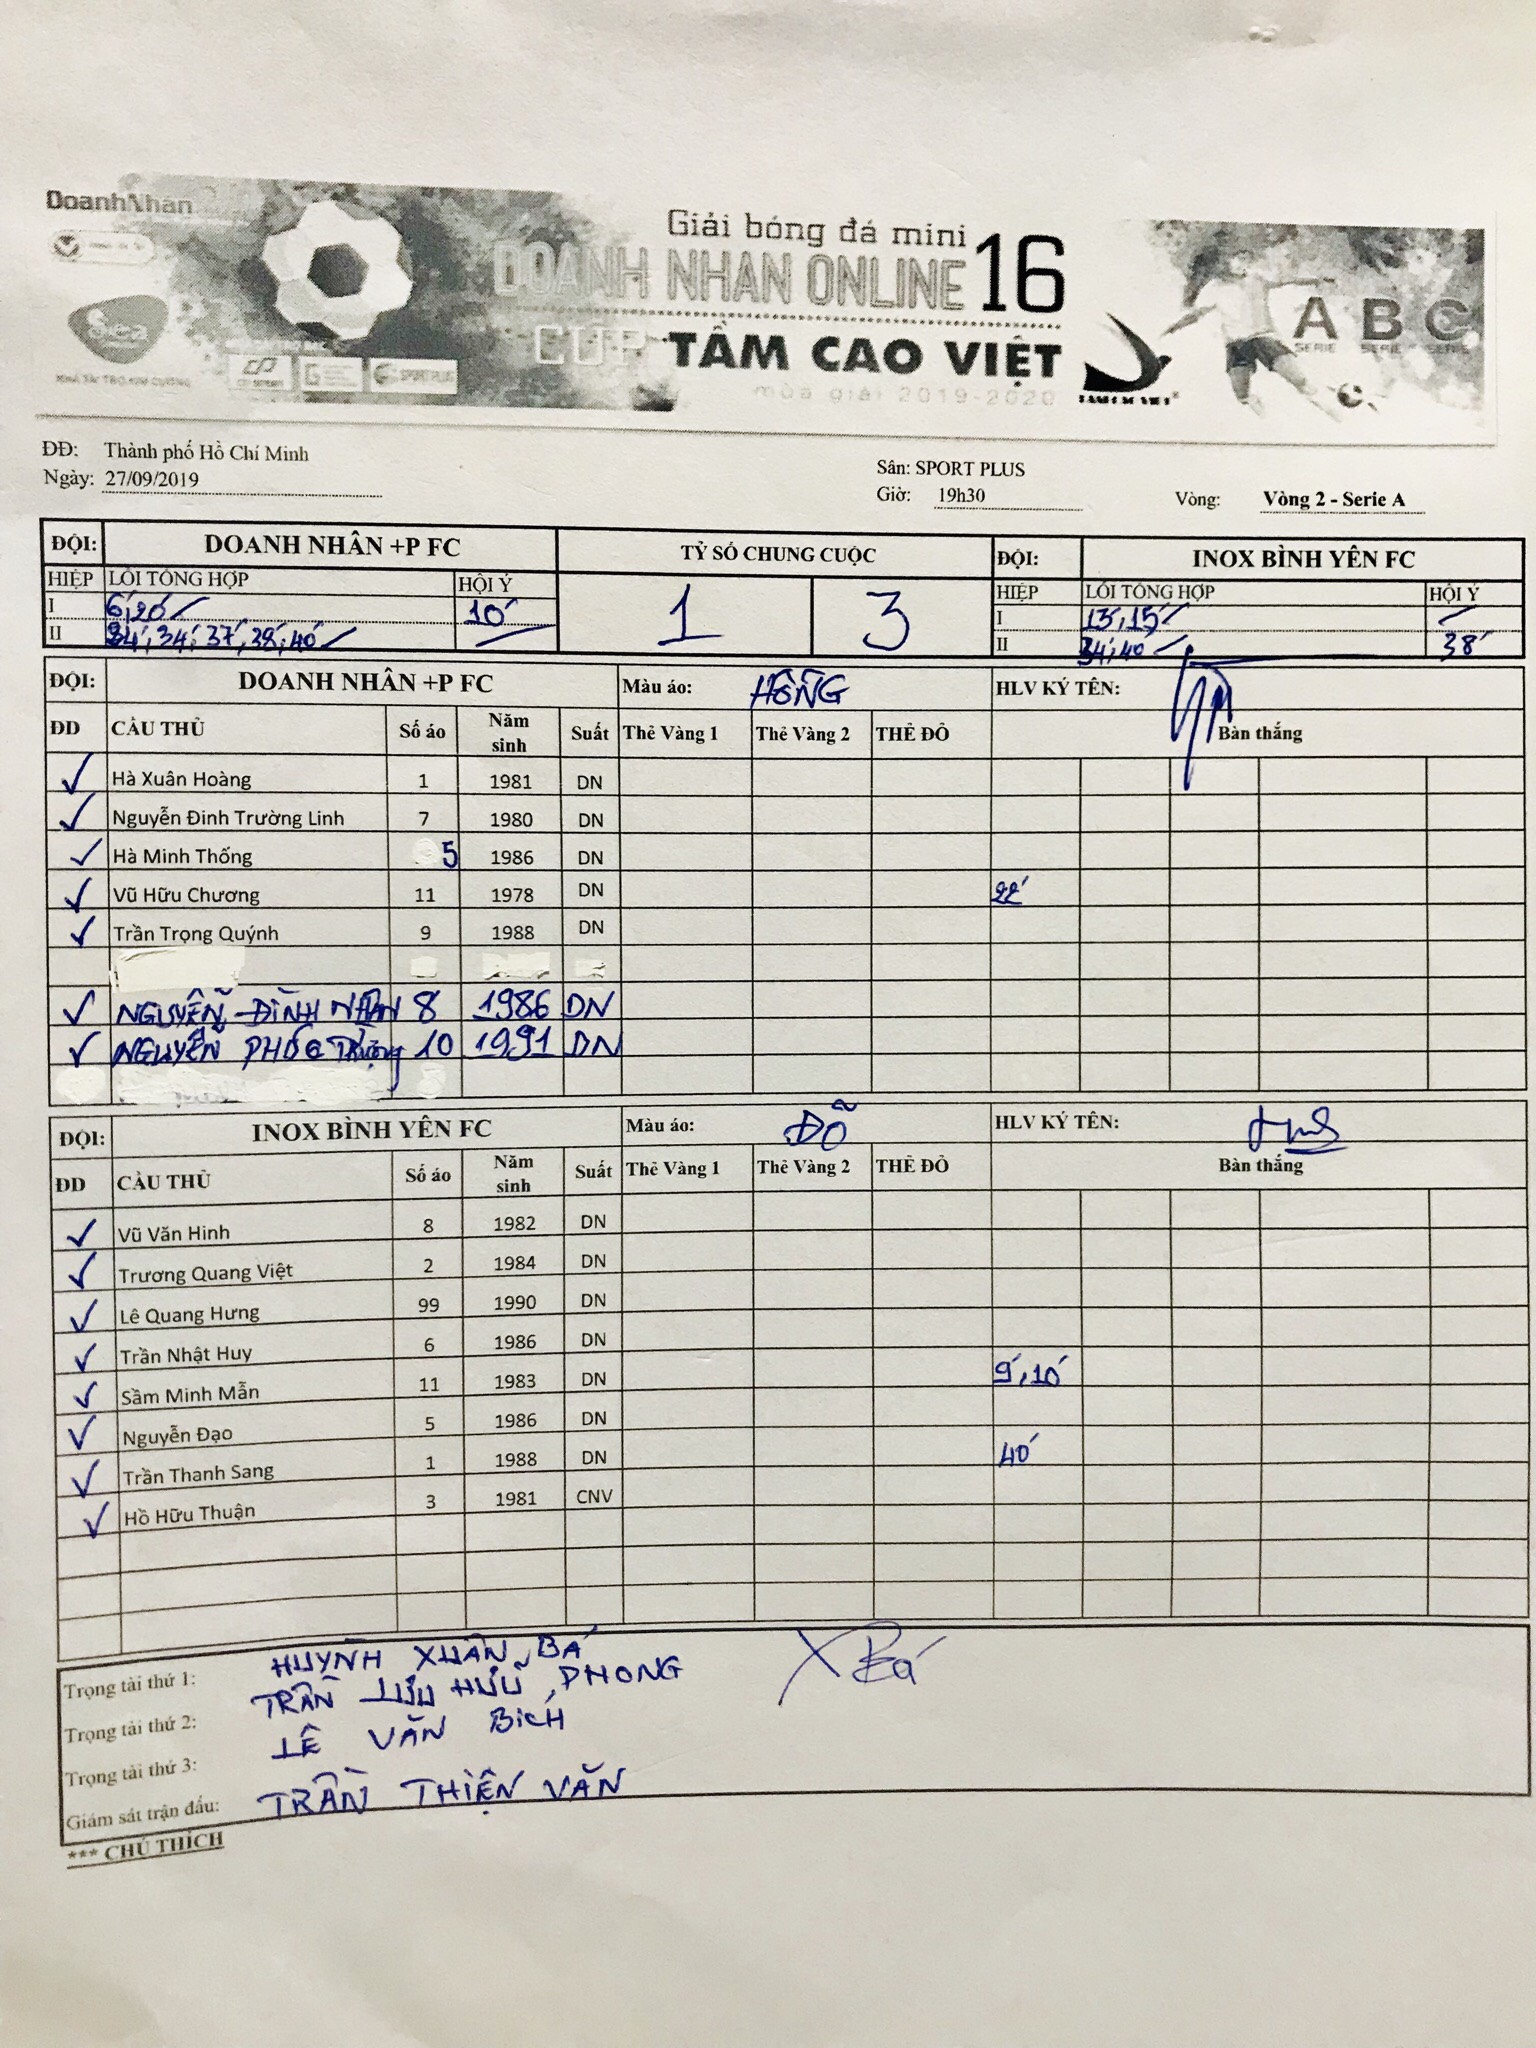 DoanhNhan
Sea
NHÀ TÀI TRỢ KIM CƯƠNG
SPORTPLUS
Giải bóng đá mini
DOANH NHAN ONLINE 16
CUP TẦM CAO VIỆT
mùa giải 2019-2020
TAM CAO VIET
A B C
SERIE SERIE SERIE
ĐĐ: Thành phố Hồ Chí Minh
Sân: SPORT PLUS
Ngày: 27/09/2019
Giờ: 19h30 Vòng: Vòng 2 - Serie A
ĐỘI: DOANH NHÂN +P FC TỶ SỐ CHUNG CUỘC ĐỘI: INOX BÌNH YÊN FC
HIỆP LỖI TỔNG HỢP HỘI Ý 1 3 HIỆP LỖI TỔNG HỢP HỘI Ý
I 6', 20' 10' I 13', 15'
II 34', 34', 37', 38', 40' II 34', 40' 38'
ĐỘI: DOANH NHÂN +P FC Màu áo: HỒNG HLV KÝ TÊN:
ĐD CẦU THỦ Số áo Năm sinh Suất Thẻ Vàng 1 Thẻ Vàng 2 THẺ ĐỎ Bàn thắng
✓ Hà Xuân Hoàng 1 1981 DN
✓ Nguyễn Đinh Trường Linh 7 1980 DN
✓ Hà Minh Thống 5 1986 DN
✓ Vũ Hữu Chương 11 1978 DN 22'
✓ Trần Trọng Quýnh 9 1988 DN
✓ NGUYỄN ĐÌNH 8 1986 DN
✓ NGUYỄN PHÚC 10 1991 DN
ĐỘI: INOX BÌNH YÊN FC Màu áo: ĐỎ HLV KÝ TÊN:
ĐD CẦU THỦ Số áo Năm sinh Suất Thẻ Vàng 1 Thẻ Vàng 2 THẺ ĐỎ Bàn thắng
✓ Vũ Văn Hinh 8 1982 DN
✓ Trương Quang Việt 2 1984 DN
✓ Lê Quang Hưng 99 1990 DN
✓ Trần Nhật Huy 6 1986 DN
✓ Sầm Minh Mẫn 11 1983 DN 9', 10'
✓ Nguyễn Đạo 5 1986 DN
✓ Trần Thanh Sang 1 1988 DN 40'
✓ Hồ Hữu Thuận 3 1981 CNV
Trọng tài thứ 1: HUỲNH XUÂN BÁ XBá
Trọng tài thứ 2: TRẦN LƯU HỮU PHONG
Trọng tài thứ 3: LÊ VĂN BÍCH
Giám sát trận đấu: TRẦN THIỆN VĂN
*** CHÚ THÍCH